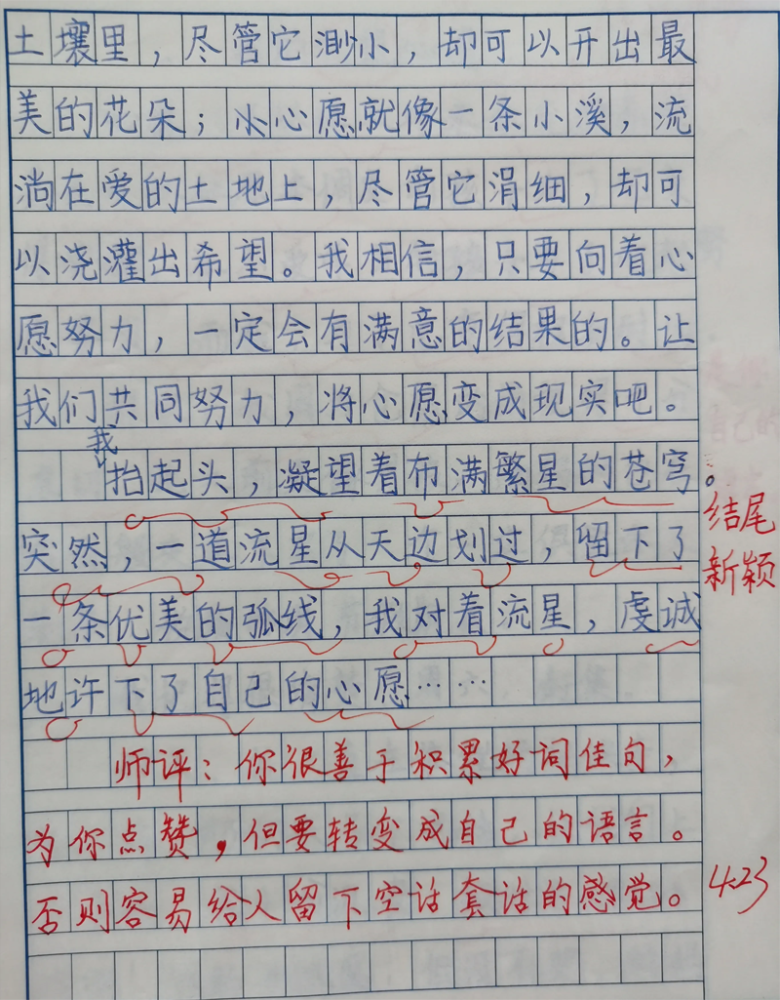 土壤里，尽管它渺小，却可以开出最
美的花朵；小心愿就像一条小溪，流
淌在爱的土地上，尽管它涓细，却可
以浇灌出希望。我相信，只要向着心
愿努力，一定会有满意的结果的。让
我们共同努力，将心愿变成现实吧。
我
抬起头，凝望着布满繁星的苍穹。
突然，一道流星从天边划过，留下了
一条优美的弧线，我对着流星，虔诚
地许下了自己的心愿……
结尾
新颖
师评：你很善于积累好词佳句，
为你点赞，但要转变成自己的语言。
否则容易给人留下空话套话的感觉。
4.23